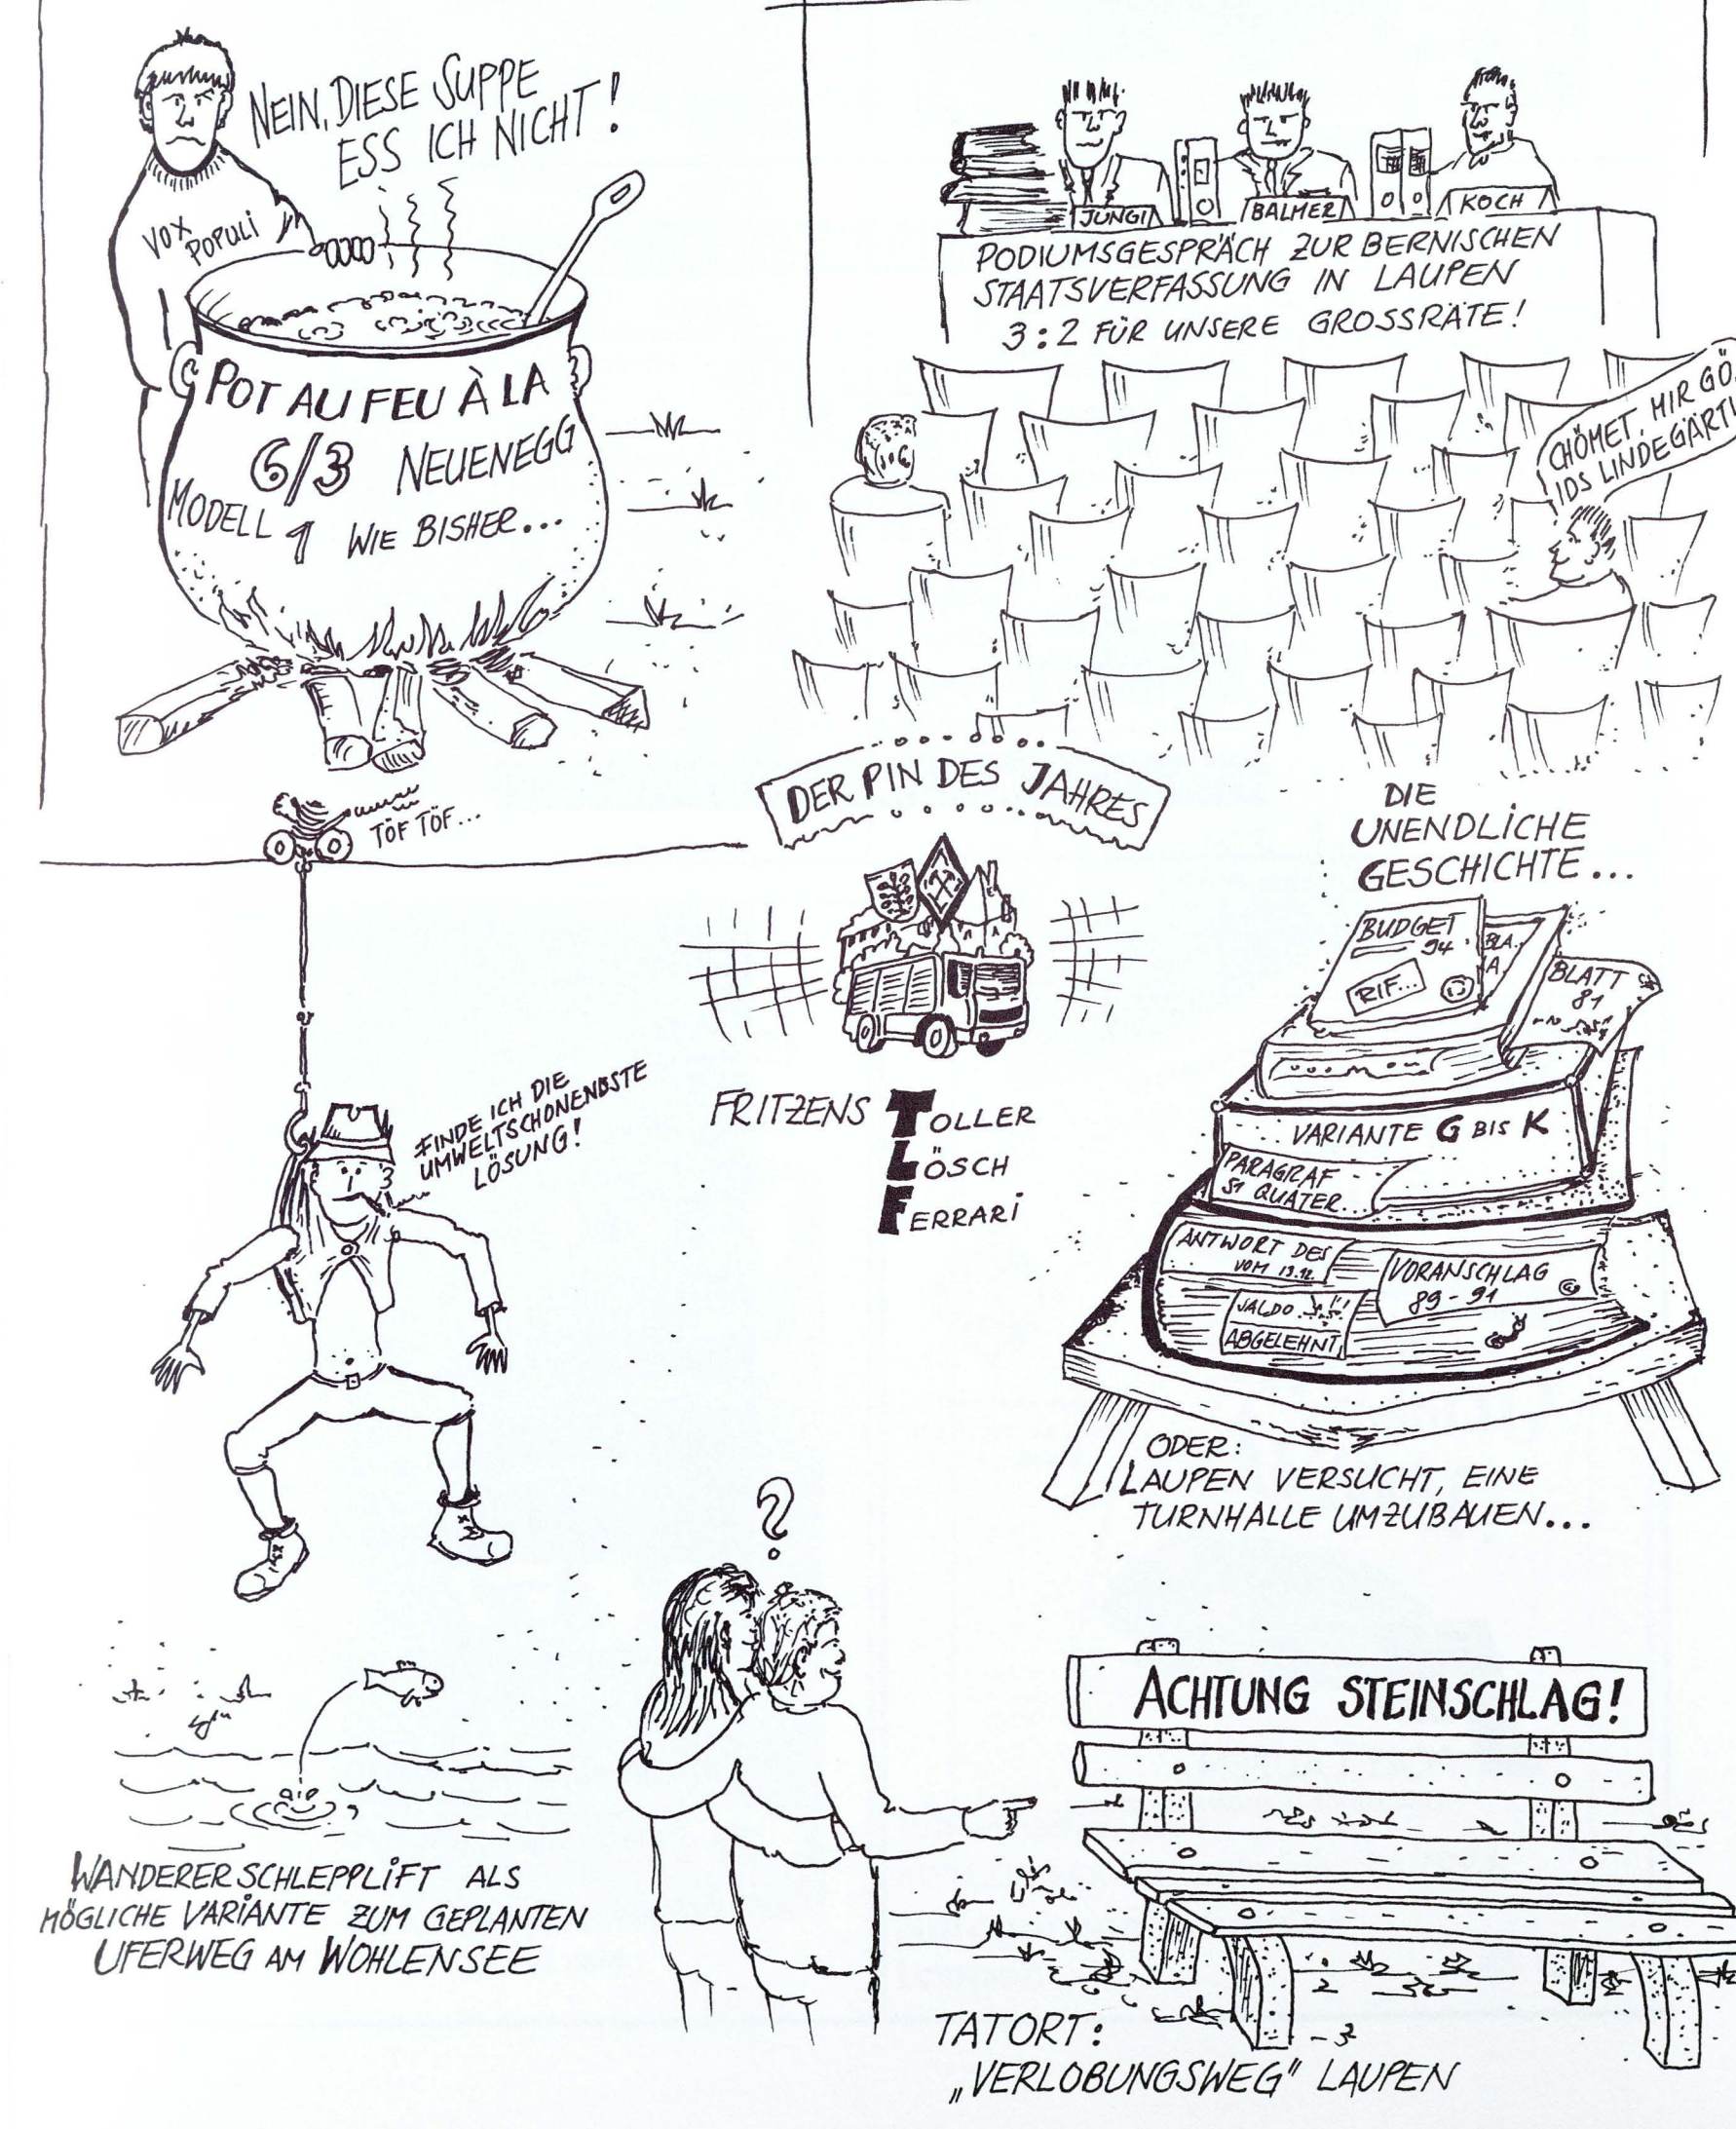 NEIN, DIESE SUPPE
ESS ICH NICHT!
VOX
POPULI
POT AU FEU À LA
6/3 NEUENEGG
MODELL 1 WIE BISHER...
JUNGI
BALMER
KOCH
PODIUMSGESPRÄCH ZUR BERNISCHEN
STAATSVERFASSUNG IN LAUPEN
3:2 FÜR UNSERE GROSSRÄTE!
CHÖMET, MIR GÖ
IDS LINDEGÄRTL
TÖF TÖF...
DER PIN DES JAHRES
FRITZENS TOLLER
LÖSCH
FERRARI
DIE
UNENDLICHE
GESCHICHTE...
BUDGET
94
RIF...
BLA.
A.
BLATT
81
VARIANTE G BIS K
PARAGRAF
51 QUATER
ANTWORT DES
VOM 13.12.
VORANSCHLAG
89-91
SALDO
ABGELEHNT
ODER:
LAUPEN VERSUCHT, EINE
TURNHALLE UMZUBAUEN...
FINDE ICH DIE
UMWELTSCHONENDSTE
LÖSUNG!
WANDERERSCHLEPPLIFT ALS
MÖGLICHE VARIANTE ZUM GEPLANTEN
UFERWEG AM WOHLENSEE
?
ACHTUNG STEINSCHLAG!
TATORT:
„VERLOBUNGSWEG" LAUPEN